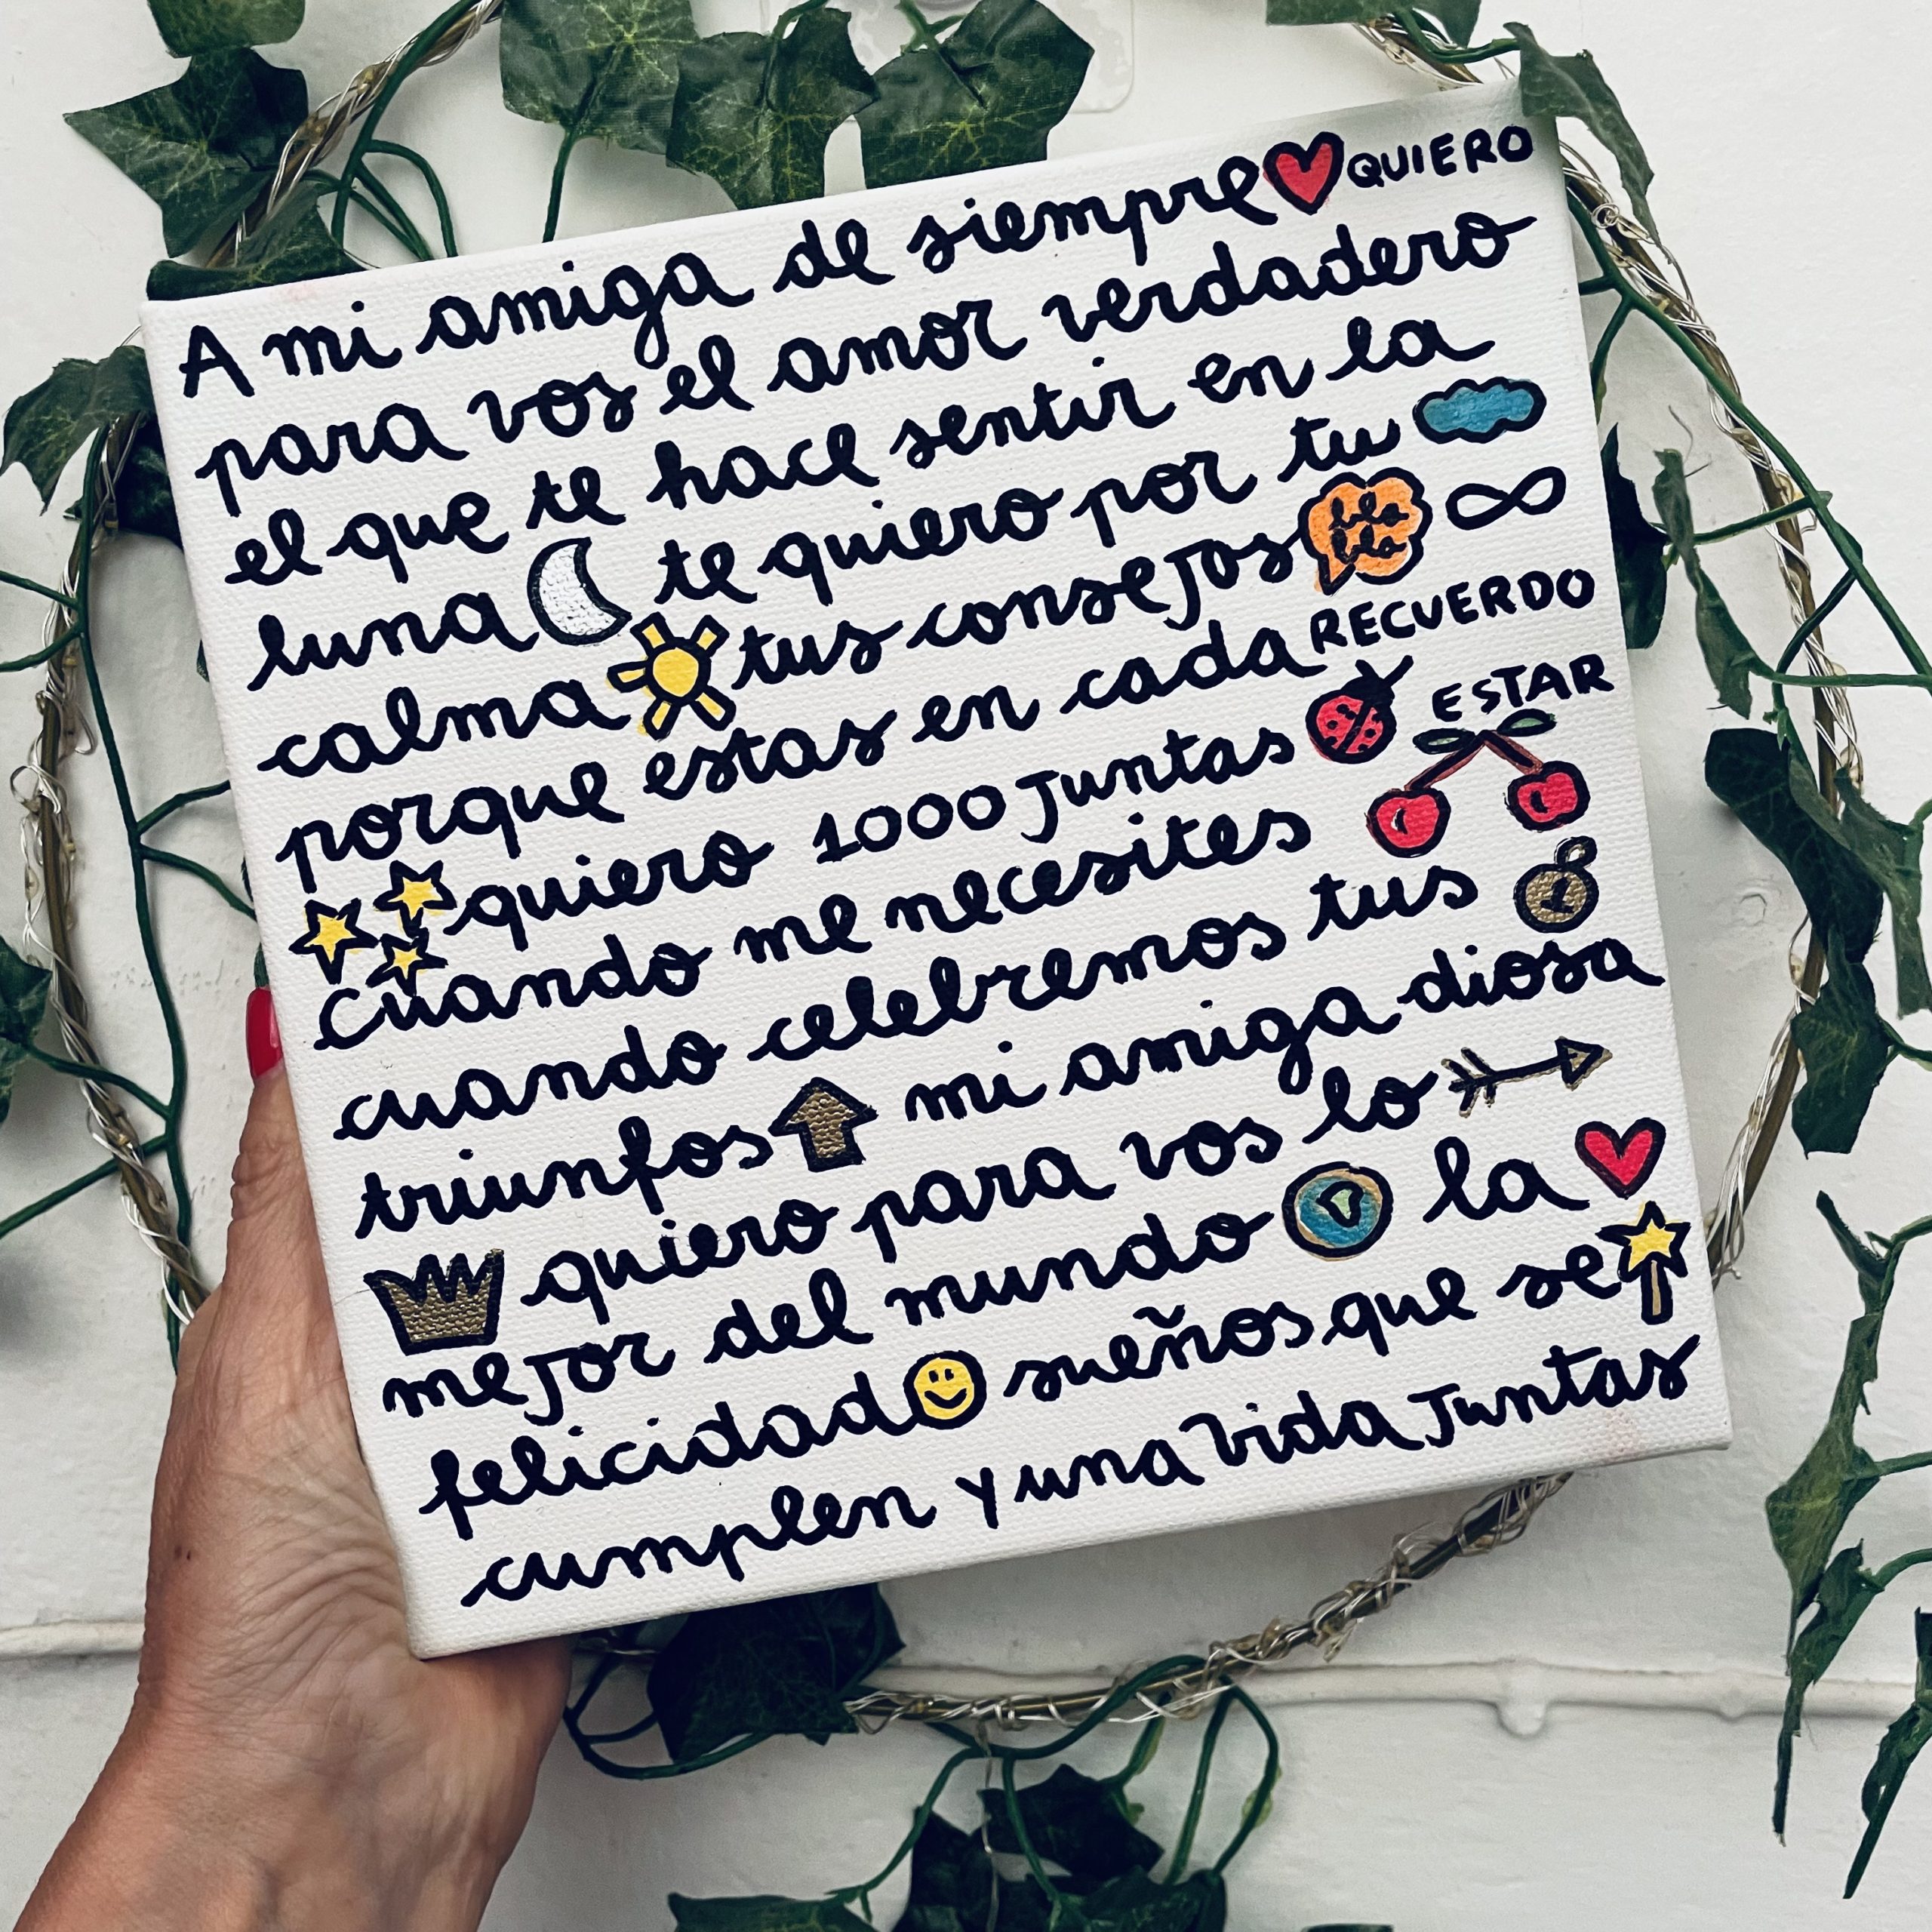 A mi amiga de siempre QUIERO
para vos el amor verdadero
el que te hace sentir en la
luna te quiero por tu
calma tus consejos bla bla
porque estas en cada RECUERDO
quiero 1000 juntas ESTAR
cuando me necesites
cuando celebremos tus 1
triunfos mi amiga diosa
quiero para vos lo
mejor del mundo la
felicidad sueños que se
cumplen y una vida juntas